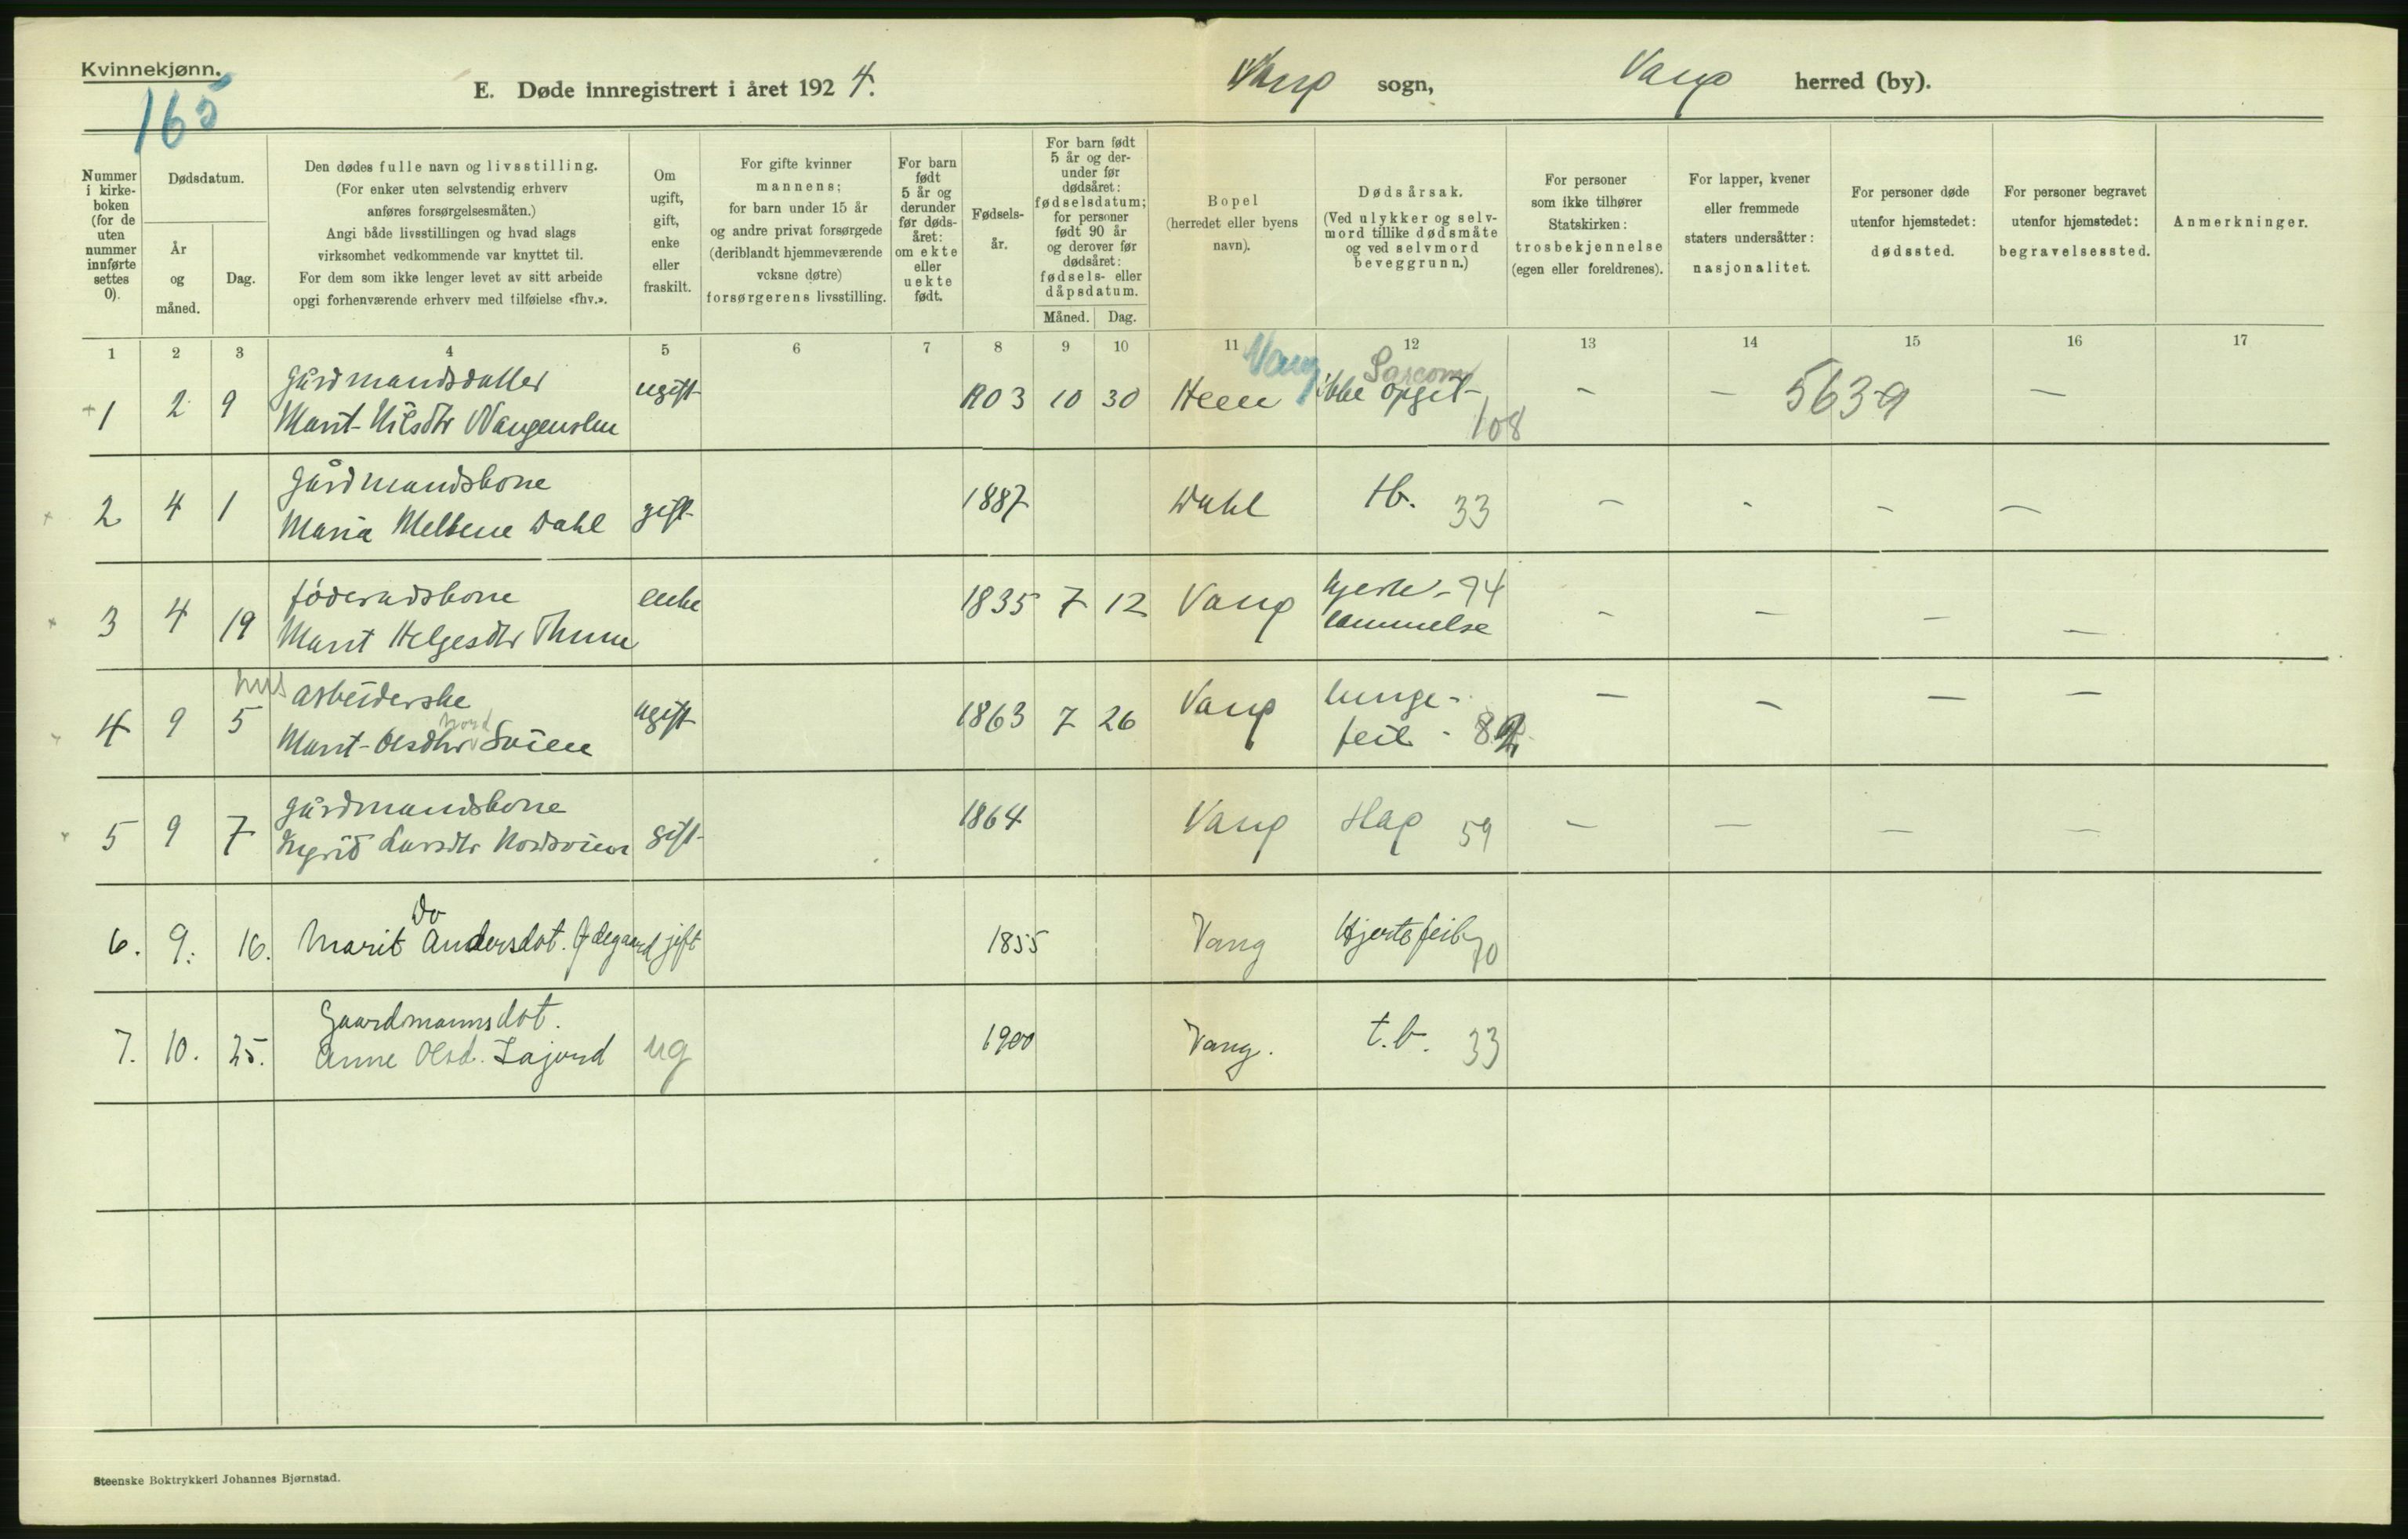 Kvinnekjønn.
165
E. Døde innregistrert i året 1924.
Vang sogn,
Vang herred (by).
Nummer i kirke-boken (for de uten nummer innførte settes 0).
Dødsdatum.
År og måned.
Dag.
Den dødes fulle navn og livsstilling.
(For enker uten selvstendig erhverv
anføres forsørgelsesmåten.)
Angi både livsstillingen og hvad slags
virksomhet vedkommende var knyttet til.
For dem som ikke lenger levet av sitt arbeide
opgi forhenværende erhverv med tilføielse «fhv.».
Om
ugift,
gift,
enke
eller
fraskilt.
For gifte kvinner
mannens;
for barn under 15 år
og andre privat forsørgede
(deriblandt hjemmeværende
voksne døtre)
forsørgerens livsstilling.
For barn
født
5 år og
derunder
før døds-
året:
om ekte
eller
uekte
født.
Fødsels-
år.
For barn født
5 år og der-
under før
dødsåret:
fødselsdatum;
for personer
født 90 år
og derover før
dødsåret:
fødsels- eller
dåpsdatum.
Måned. Dag.
Bopel
(herredet eller byens
navn).
Dødsårsak.
(Ved ulykker og selv-
mord tillike dødsmåte
og ved selvmord
beveggrunn.)
For personer
som ikke tilhører
Statskirken:
trosbekjennelse
(egen eller foreldrenes).
For lapper, kvener
eller fremmede
staters undersåtter:
nasjonalitet.
For personer døde
utenfor hjemstedet:
dødssted.
For personer begravet
utenfor hjemstedet:
begravelsessted.
Anmerkninger.
1 2 3 4 5 6 7 8 9 10 11 12 13 14 15 16 17
Vang Sarcom
gårdmandsdatter
+ 1 2 9 Marit Nilsdtr Wangensten ugift 1903 10 30 Heen ikke opgit - - 5639 -
108
gårdmandskone
+ 2 4 1 Maria Dahl gift 1887 Dahl tb. 33 - - - -
føderådskone
+ 3 4 19 Marit Helgesdtr Thune enke 1835 7 12 Vang hjerte- 94
lammelse - - - -
hus arbeiderske
nord
4 9 5 Marit Olsdtr Søien ugift 1863 7 26 Vang lunge-
feil - 82 - - - -
gårdmandskone
5 9 7 Ingrid Larsdtr gift 1864 Vang Slag 59 - - - -
Do
6. 9. 16. Marit Andersdot. Ødegaard gift 1855 Vang Hjertefeil 90
Gaardmannsdot.
7. 10. 25. Anne Olsd. ug 1900 Vang. t.b. 33
Steenske Boktrykkeri Johannes Bjørnstad.